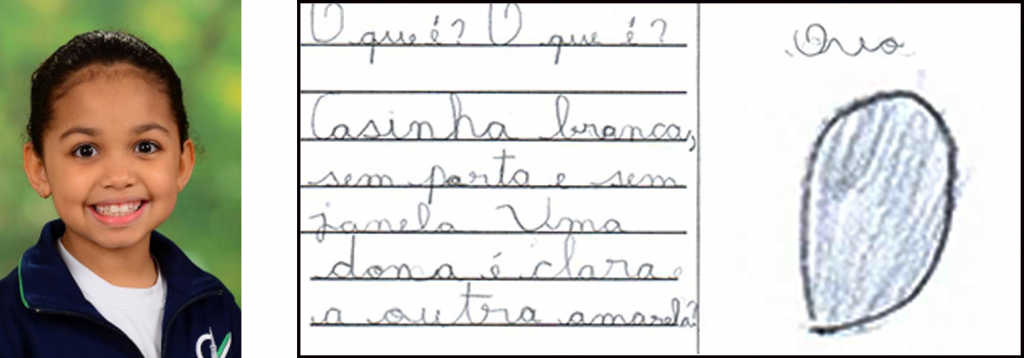 O que é? O que é?
Casinha branca,
sem porta e sem
janela Uma
dona é clara e
a outra amarela?
Ovo